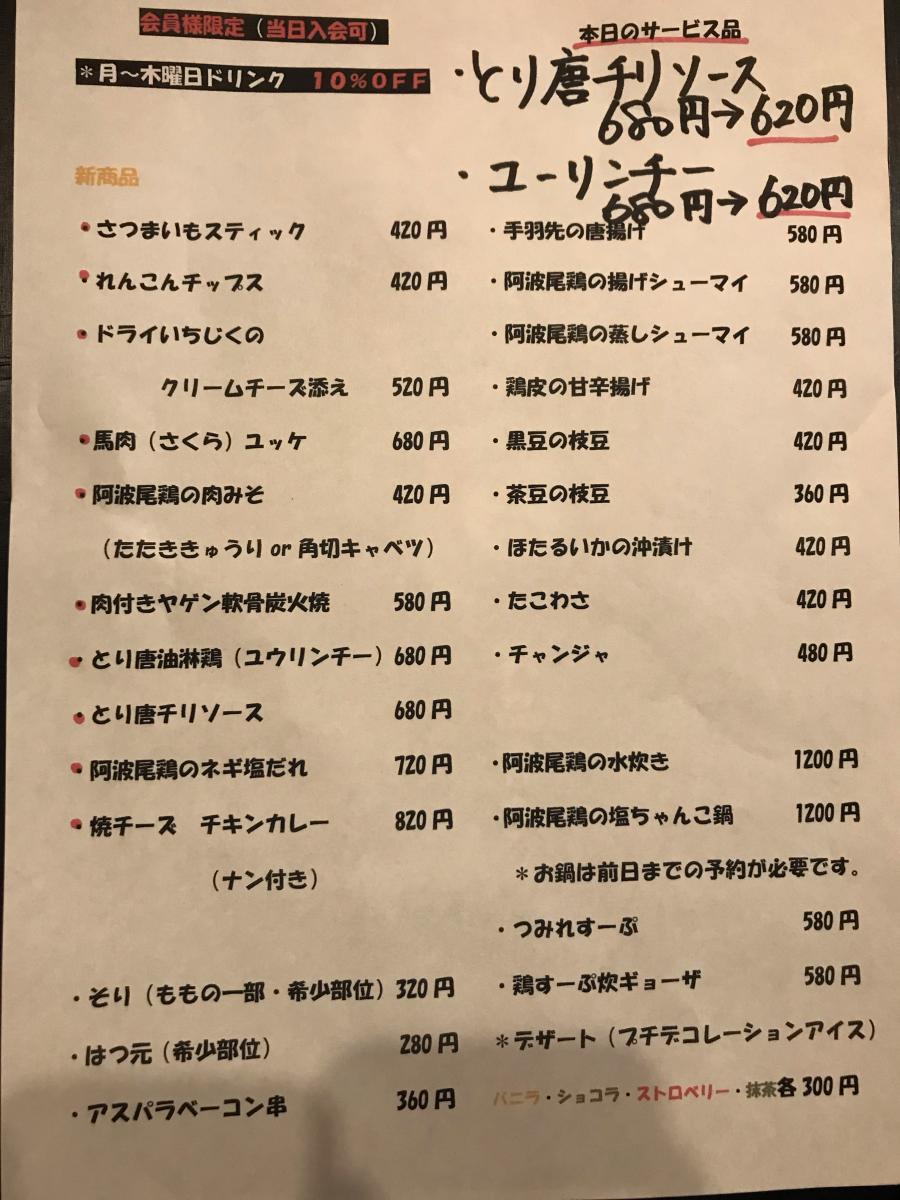 会員様限定（当日入会可）
＊月～木曜日ドリンク　１０％ＯＦＦ
本日のサービス品
・とり唐チリソース
680円→620円
・ユーリンチー
680円→620円
新商品
・さつまいもスティック 420円
・れんこんチップス 420円
・ドライいちじくの
クリームチーズ添え 520円
・馬肉（さくら）ユッケ 680円
・阿波尾鶏の肉みそ 420円
（たたききゅうり or 角切キャベツ）
・肉付きヤゲン軟骨炭火焼 580円
・とり唐油淋鶏（ユウリンチー）680円
・とり唐チリソース 680円
・阿波尾鶏のネギ塩だれ 720円
・焼チーズ　チキンカレー 820円
（ナン付き）
・そり（ももの一部・希少部位）320円
・はつ元（希少部位） 280円
・アスパラベーコン串 360円
・手羽先の唐揚げ 580円
・阿波尾鶏の揚げシューマイ 580円
・阿波尾鶏の蒸しシューマイ 580円
・鶏皮の甘辛揚げ 420円
・黒豆の枝豆 420円
・茶豆の枝豆 360円
・ほたるいかの沖漬け 420円
・たこわさ 420円
・チャンジャ 480円
・阿波尾鶏の水炊き 1200円
・阿波尾鶏の塩ちゃんこ鍋 1200円
＊お鍋は前日までの予約が必要です。
・つみれすーぷ 580円
・鶏すーぷ炊ギョーザ 580円
＊デザート（プチデコレーションアイス）
バニラ・ショコラ・ストロベリー・抹茶各 300円